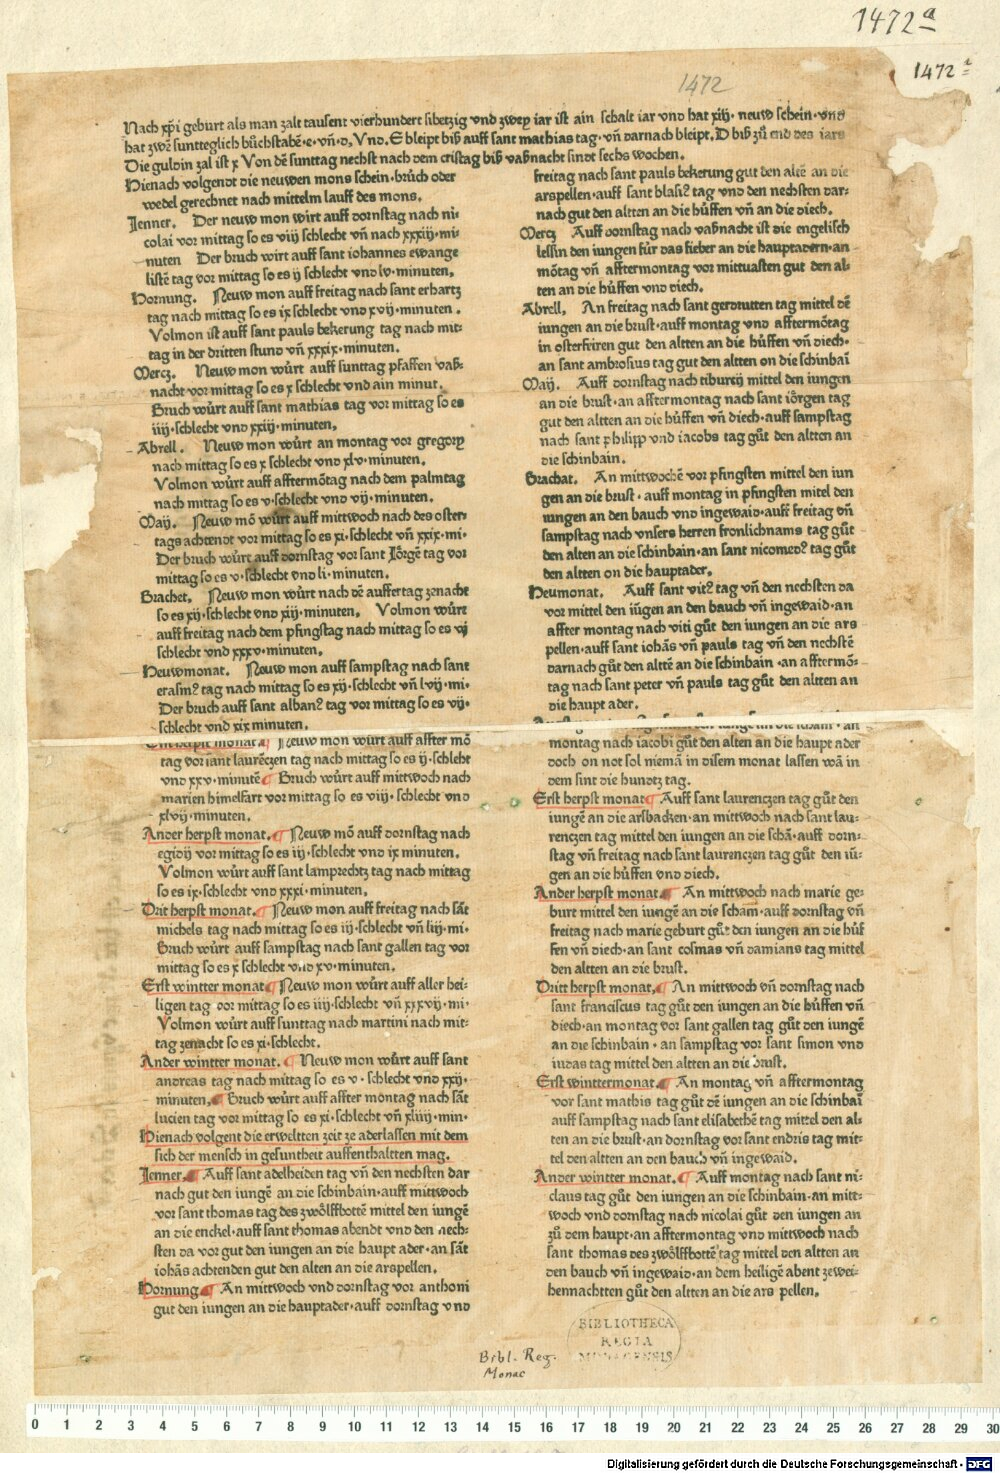 1472 a
1472 a
1472
Nach xp̄i geburt als man zalt tausent vierhundert sibetzig vnd zwey iar ist ain schalt iar vnd hat xiij· neuw schein· vnd
hat zwē suntteglich bůchstabē·e·vñ·d, Vnd. E bleipt biß auff sant mathias tag· vñ darnach bleipt. D biß zů end des iars
Die guldin zal ist x Von dē sunttag nechst nach dem cristag biß vaßnacht sindt sechs wochen.
Hienach volgendt die neuwen mons schein·brůch oder
wedel gerechnet nach mittelm lauff des mons.
Jenner. Der neuw mon wirt auff dornstag nach ni
colai vor mittag so es viij schlecht vñ nach xxxiij·mi·
nuten Der bruch wirt auff sant iohannes ewange
listē tag vor mittag so es ij schlecht vnd lv·minuten,
Hornung. Neuw mon auff freitag nach sant erhartz
tag nach mittag so es ix schlecht vnd xvij·minuten .
Volmon ist auff sant pauls bekerung tag nach mit:
tag in der dritten stund vñ xxxix·minuten.
Mercz. Neuw mon wůrt auff sunttag pfaffen vaß:
nacht vor mittag so es x schlecht vnd ain minut.
Bruch wůrt auff sant mathias tag vor mittag so es
iiij·schlecht vnd xxiij·minuten,
Abrell . Neuw mon wůrt an montag vor gregory
nach mittag so es x schlecht vnd xlv·minuten.
Volmon wůrt auff afftermōtag nach dem palmtag
nach mittag so es v·schlecht vnd vij·minuten.
Maij. Neuw mō wůrt auff mittwoch nach des oster:
tags achtendt vor mittag so es xi·schlecht vñ xxix·mi·
Der bruch wůrt auff dornstag vor sant Jörgē tag vor
mittag so es v·schlecht vnd li·minuten.
Brachet. Neuw mon wůrt nach dē auffertag zenacht
so es xij·schlecht vnd xiij·minuten. Volmon wůrt
auff freitag nach dem pfingstag nach mittag so es vj
schlecht vnd xxxv·minuten,
Heuwmonat. Neuw mon auff sampstag nach sant
erasmꝰ tag nach mittag so es xij·schlecht vñ lvij·mi·
Der bruch auff sant albanꝰ tag vor mittag so es vij·
schlecht vnd xix minuten.
Neuw mon wůrt auff affter mō
tag vor sant laurēczen tag nach mittag so es ij·schleht
vnd xxv·minutē Bruch wůrt auff mittwoch nach
marien himelfart vor mittag so es viij·schlecht vnd
xlvij·minuten.
Ander herpst monat. Neuw mō auff dornstag nach
egidij vor mittag so es iij·schlecht vnd ix minuten.
Volmon wůrt auff sant lamprechtz tag nach mittag
so es ix·schlecht vnd xxxi·minuten,
Drit herpst monat. Neuw mon auff freitag nach sāt
michels tag nach mittag so es iij·schlecht vñ liij·mi·
Bruch wůrt auff sampstag nach sant gallen tag vor
mittag so es x schlecht vnd xv·minuten.
Erst wintter monat Neuw mon wůrt auff aller hei-
ligen tag vor mittag so es iiij·schlecht vñ xxxvij·mi·
Volmon wůrt auff sunttag nach martini nach mit:
tag zenacht so es xi·schlecht.
Ander wintter monat. Neuw mon wůrt auff sant
andreas tag nach mittag so es v·schlecht vnd xxij·
minuten, Bruch wůrt auff affter montag nach sāt
lucien tag vor mittag so es xi·schlecht vñ xliiij·min·
Hienach volgent die erweltten zeit ze aderlassen mit dem
sich der mensch in gesuntheit auffenthaltten mag.
Jenner. Auff sant adelheiden tag vñ den nechsten dar
nach gut den iungē an die schinbain·auff mittwoch
vor sant thomas tag des zwölffbottē mittel den iungē
an die enckel·auff sant thomas abendt vnd den nech-
sten da vor gut den iungen an die haupt ader·an sāt
iohās achtenden gut den alten an die arspellen.
Hornung An mittwoch vnd dornstag vor anthoni
gut den iungen an die hauptader·auff dornstag vnd
freitag nach sant pauls bekerung gut den altē an die
arspellen·auff sant blasiꝰ tag vnd den nechsten dar-
nach gut den altten an die hůffen vñ an die diech.
Mercz Auff dornstag nach vaßnacht ist die engelisch
lessin den iungen für das fieber an die hauptadern·an
mōtag vñ afftermontag vor mittuasten gut den al-
ten an die hůffen vnd diech.
Abrell, An freitag nach sant gerdrutten tag mittel dē
iungen an die brust·auff montag vnd afftermōtag
in osterfriren gut den altten an die hůffen vñ diech·
an sant ambrosius tag gut den altten on die schinbaī
Maij. Auff dornstag nach tiburcij mittel den iungen
an die brust·an afftermontag nach sant iörgen tag
gut den altten an die hůffen vñ diech·auff sampstag
nach sant philipp vnd iacobs tag gůt den altten an
die schinbain.
Brachat. An mittwochē vor pfingsten mittel den iun
gen an die brust·auff montag in pfingsten mitel den
iungen an den bauch vnd ingewaid·auff freitag vñ
sampstag nach vnsers herren fronlichnams tag gůt
den alten an die schinbain·an sant nicomedꝰ tag gůt
den altten on die hauptader,
Heumonat. Auff sant vitꝰ tag vñ den nechsten da
vor mittel den iūgen an den bauch vñ ingewaid·an
affter montag nach viti gůt den iungen an die ars
pellen·auff sant iohās vñ pauls tag vñ den nechstē
darnach gůt den altē an die schinbain·an afftermō:
tag nach sant peter vñ pauls tag gůt den altten an
die haupt ader.
montag nach iacobi gůt den alten an die haupt ader
doch on not sol niemā in disem monat lassen wā in
dem sint die hundtz tag.
Erst herpst monat Auff sant laurenczen tag gůt den
iungē an die arsbacken·an mittwoch nach sant lau-
renczen tag mittel den iungen an die schā·auff dorn-
stag vñ freitag nach sant laurenczen tag gůt den iū:
gen an die hůffen vnd diech.
Ander herpst monat. An mittwoch nach marie ge-
burt mittel den iungē an die scham·auff dornstag vñ
freitag nach marie geburt gůt den iungen an die hůf
fen vñ diech·an sant cosmas vñ damians tag mittel
den altten an die brust.
Dritt herpst monat, An mittwoch vñ dornstag nach
sant franciscus tag gůt den iungen an die hůffen vñ
diech·an montag vor sant gallen tag gůt den iungē
an die schinbain·an sampstag vor sant simon vnd
iudas tag mittel den altten an die brust.
Erst winttermonat. An montag vñ afftermontag
vor sant mathis tag gůt dē iungen an die schinbaī
auff sampstag nach sant elisabethē tag mittel den al-
ten an die brust·an dornstag vor sant endris tag mit-
tel den altten an den bauch vñ ingewaid.
Ander wintter monat. Auff montag nach sant ni-
claus tag gůt den iungen an die schinbain·an mitt-
woch vnd dornstag nach nicolai gůt den iungen an
zů dem haupt·an afftermontag vnd mittwoch nach
sant thomas des zwölffbottē tag mittel den altten an
den bauch vñ ingewaid·an dem heiligē abent zewei-
hennachtten gůt den altten an die ars pellen.
BIBLIOTHECA
REGIA
MONACENSIS
Bibl. Reg.
Monac
0 1 2 3 4 5 6 7 8 9 10 11 12 13 14 15 16 17 18 19 20 21 22 23 24 25 26 27 28 29 30
Digitalisierung gefördert durch die Deutsche Forschungsgemeinschaft - DFG